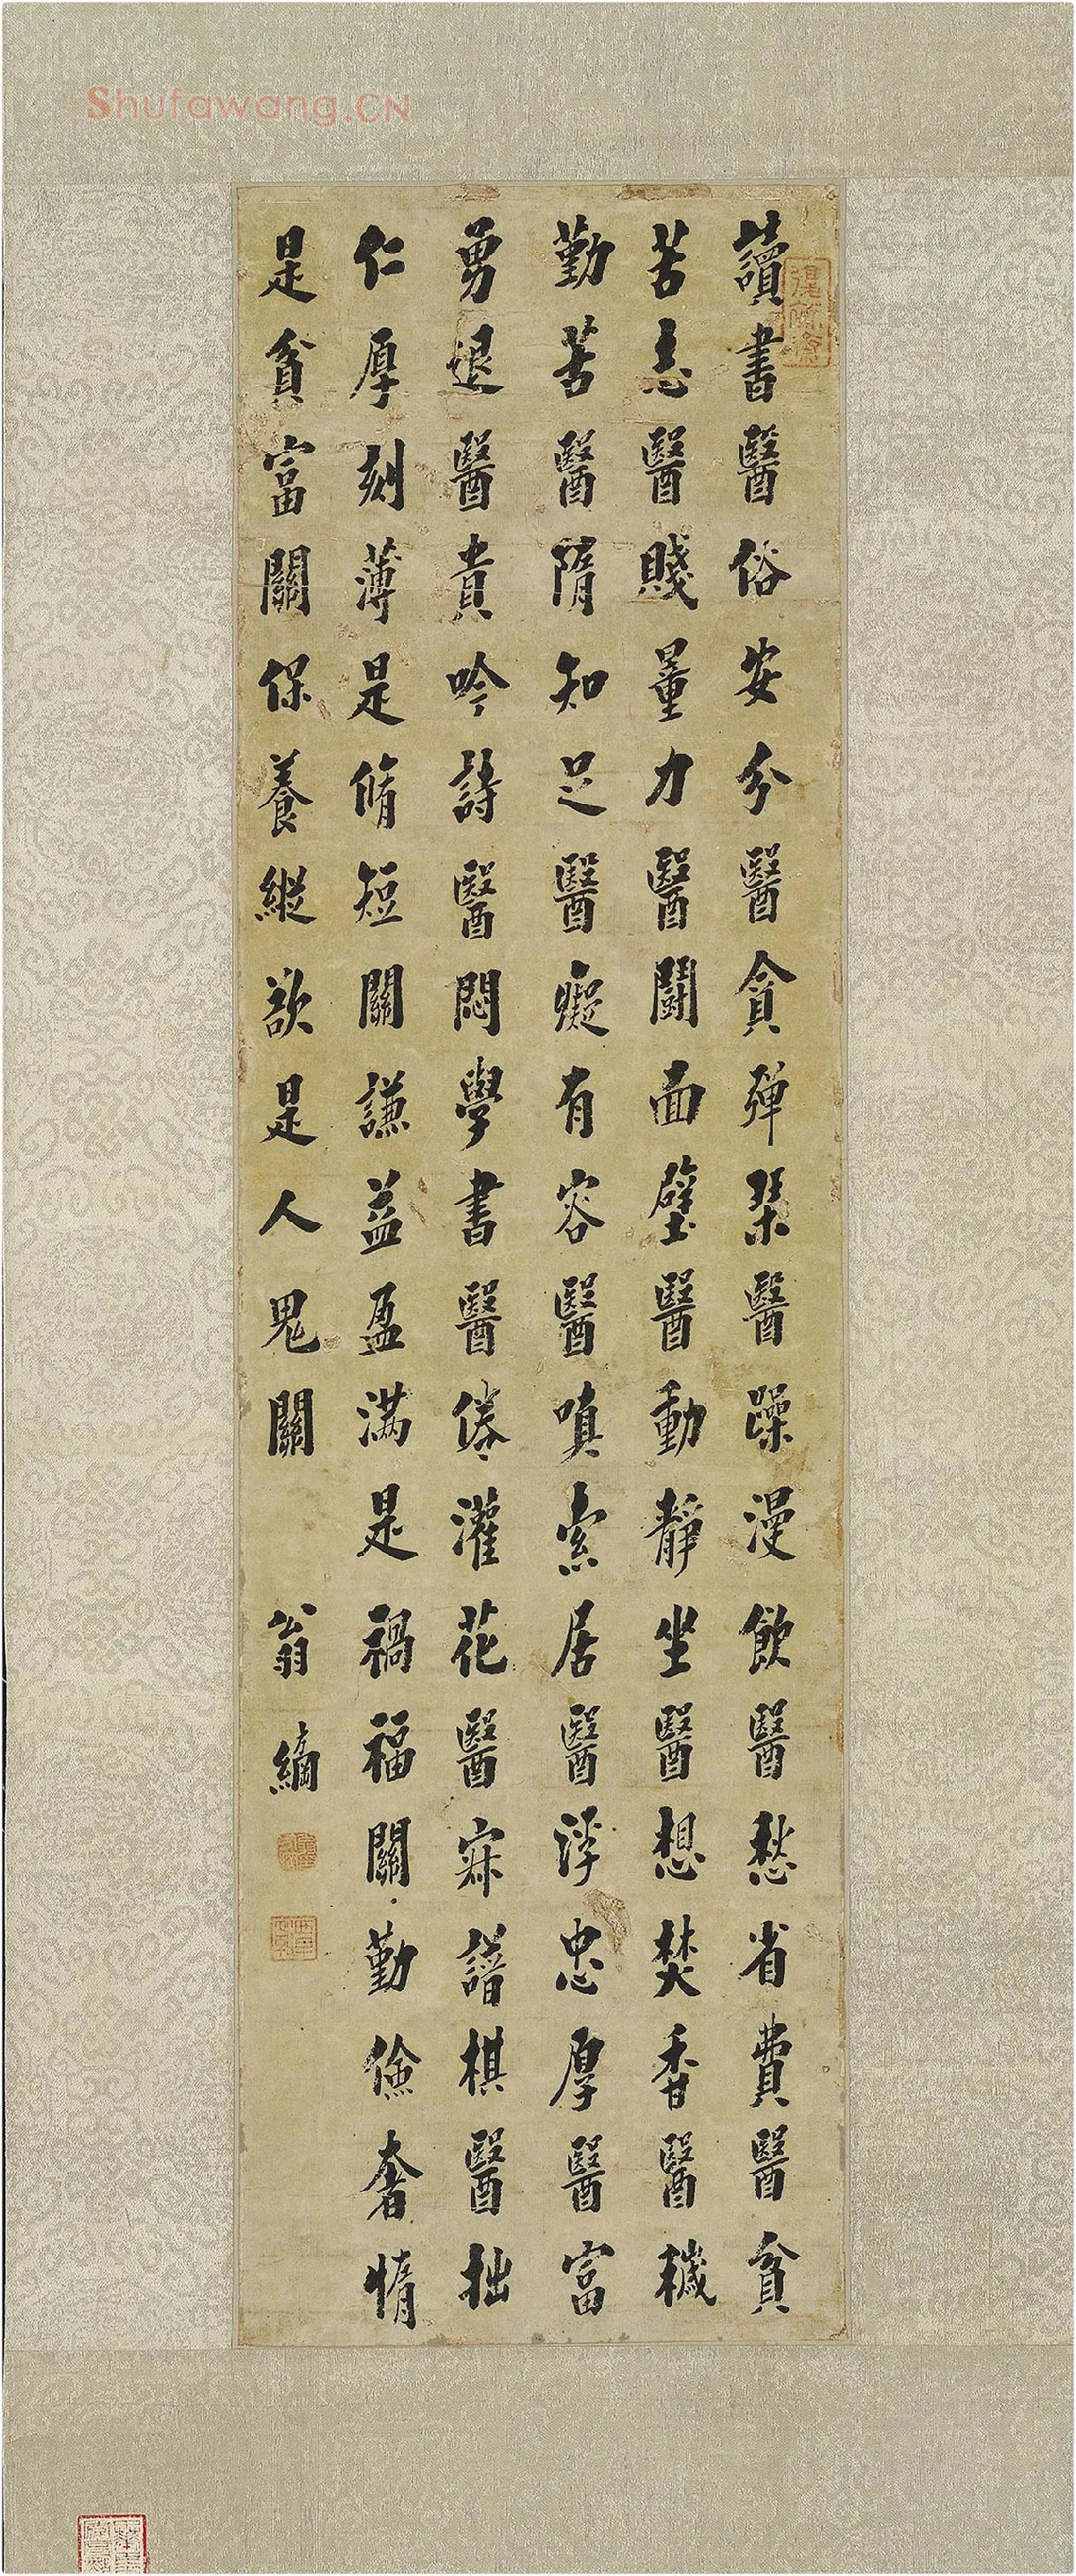 Shufawang.CN
讀書醫俗安分醫貪彈琹醫躁漫飲醫愁省費醫貧
苦志醫賤量力醫鬪面壁醫動靜坐醫想焚香醫穢
勤苦醫隋知足醫癡有容醫嗔索居醫浮忠厚醫富
勇退醫貴吟詩醫悶學書醫倦灌花醫寂譜棋醫拙
仁厚刻薄是脩短關謙益盈滿是禍福關勤儉奢惰
是貧富關保養縱欲是人鬼關
翁